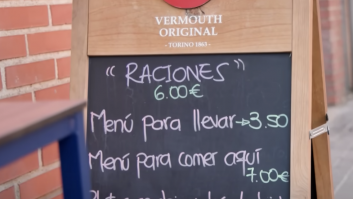 VERMOUTH
ORIGINAL
- TORINO 1863 -
"RACIONES"
6.00€
Menú para llevar→3.50
Menú para comer aquí
7.00€